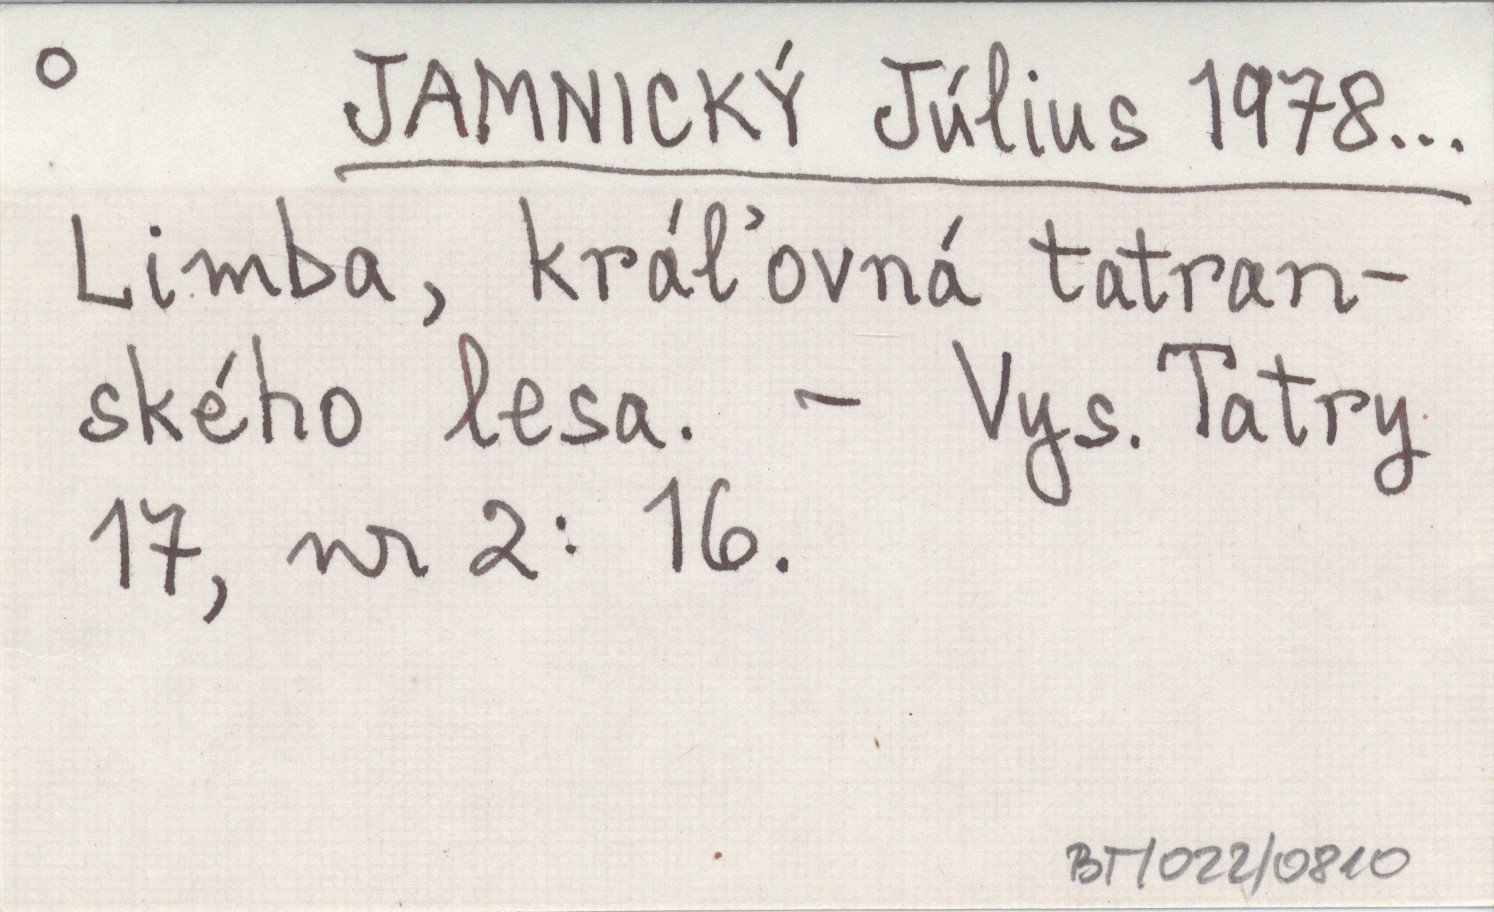 o JAMNICKÝ Július 1978...
Limba, kráľovná tatran-
ského lesa. - Vys. Tatry
17, nr 2: 16.
BT/022/0810